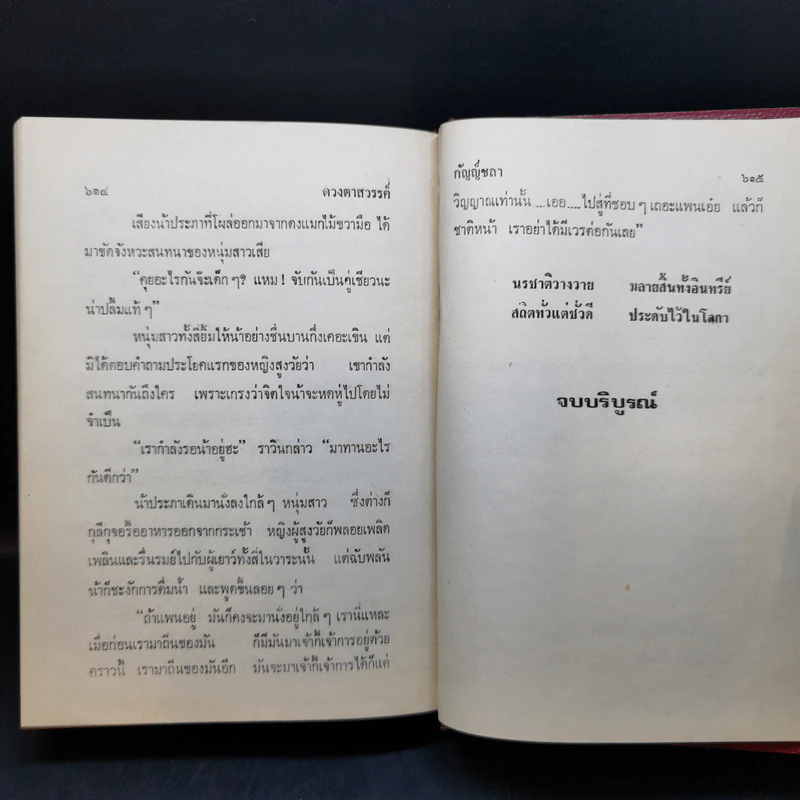 ๖๑๔ ดวงตาสวรรค์
เสียงน้าประภาที่โผล่ออกมาจากดงแมกไม้ขวามือ ได้
มาขัดจังหวะสนทนาของหนุ่มสาวเสีย
“คุยอะไรกันจ๊ะเด็ก ๆ? แหม ! จับกันเป็นคู่เชียวนะ
น่าปลื้มแท้ ๆ”
หนุ่มสาวทั้งสี่ยิ้มให้น้าอย่างชื่นบานกึ่งเคอะเขิน แต่
มิได้ตอบคำถามประโยคแรกของหญิงสูงวัยว่า เขากำลัง
สนทนากันถึงใคร เพราะเกรงว่าจิตใจน้าจะหดหู่ไปโดยไม่
จำเป็น
“เรากำลังรอน้าอยู่ฮะ” ราวินกล่าว “มาทานอะไร
กันดีกว่า”
น้าประภาเดินมานั่งลงใกล้ ๆ หนุ่มสาว ซึ่งต่างก็
กุลีกุจอรื้ออาหารออกจากกระเช้า หญิงผู้สูงวัยก็พลอยเพลิด
เพลินและรื่นรมย์ไปกับผู้เยาว์ทั้งสี่ในวาระนั้น แต่ฉับพลัน
น้าก็ชะงักการดื่มน้ำ และพูดขึ้นลอย ๆ ว่า
“ถ้าแพนอยู่ มันก็คงจะมานั่งอยู่ใกล้ ๆ เรานี่แหละ
เมื่อก่อนเรามาถิ่นของมัน ก็มีมันมาเจ้ากี้เจ้าการอยู่ด้วย
คราวนี้ เรามาถิ่นของมันอีก มันจะมาเจ้ากี้เจ้าการได้ก็แต่
กัญญ์ชลา ๖๑๕
วิญญาณเท่านั้น ...เออ.....ไปสู่ที่ชอบ ๆ เถอะแพนเอ๋ย แล้วก็
ชาติหน้า เราอย่าได้มีเวรต่อกันเลย”
นรชาติวางวาย มลายสิ้นทั้งอินทรีย์
สถิตทั่วแต่ชั่วดี ประดับไว้ในโลกา
จบบริบูรณ์